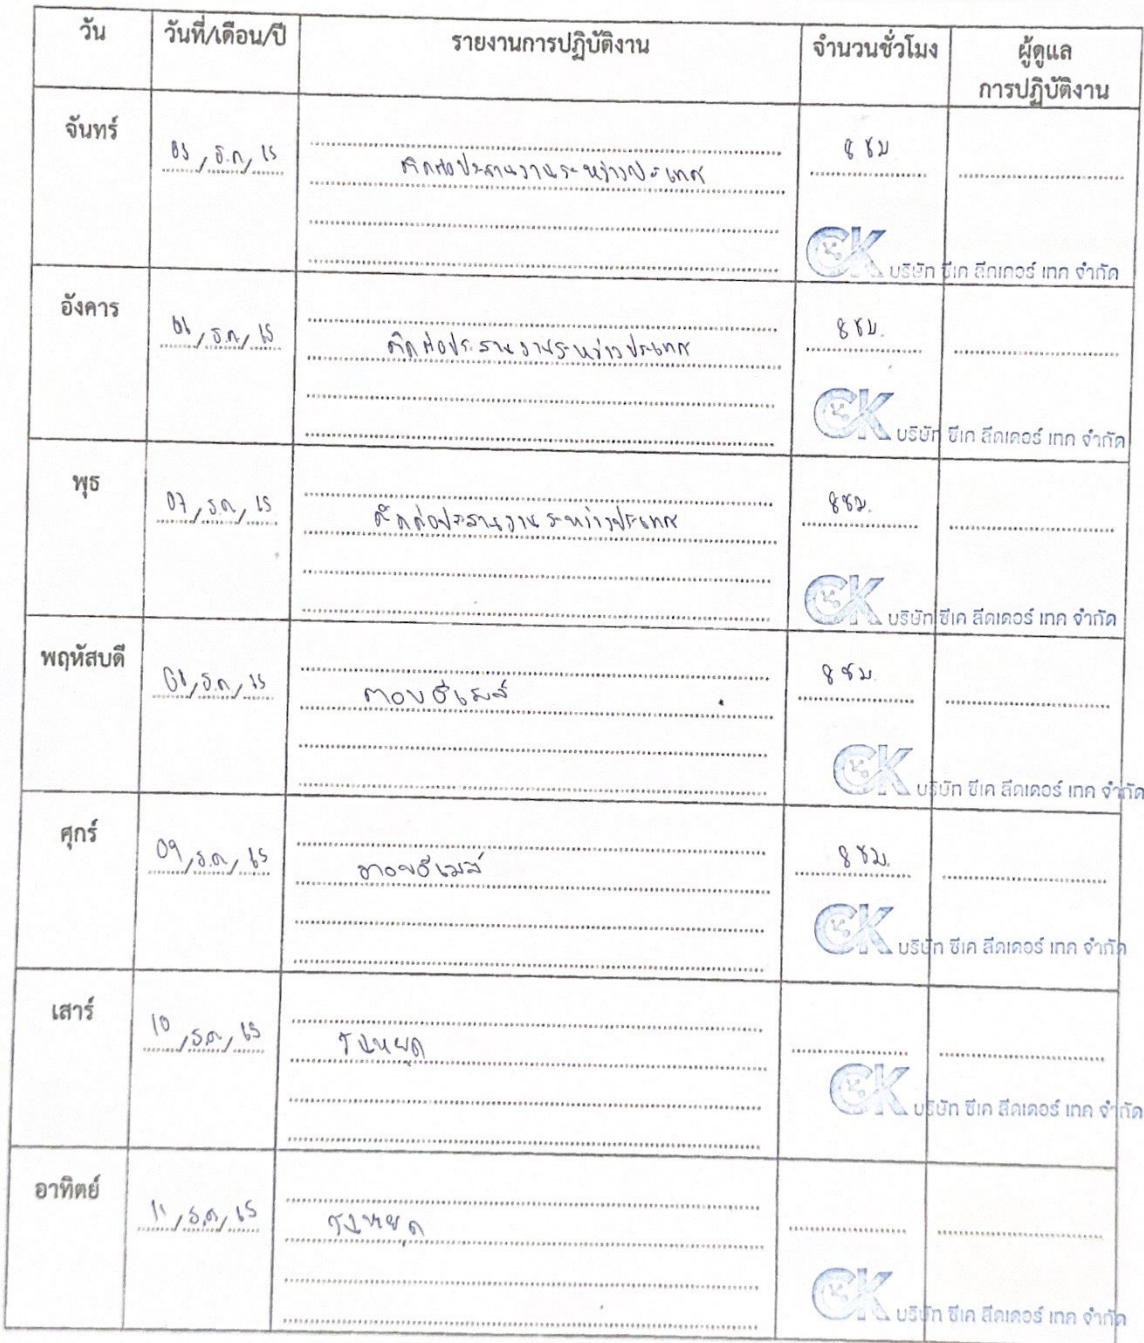 วัน วันที่/เดือน/ปี รายงานการปฏิบัติงาน จำนวนชั่วโมง ผู้ดูแล
การปฏิบัติงาน
จันทร์
05 / ธ.ค / 65 ติดต่อประสานงานระหว่างประเทศ 8 ชม
CK บริษัท ซีเค ลีดเดอร์ เทค จำกัด
อังคาร
06 / ธ.ค / 65 ติดต่อประสานงานระหว่างประเทศ 8 ชม.
CK บริษัท ซีเค ลีดเดอร์ เทค จำกัด
พุธ
07 / ธ.ค / 65 ติดต่อประสานงานระหว่างประเทศ 8 ชม.
CK บริษัท ซีเค ลีดเดอร์ เทค จำกัด
พฤหัสบดี
08 / ธ.ค / 65 ตอบอีเมล์ 8 ชม.
CK บริษัท ซีเค ลีดเดอร์ เทค จำกัด
ศุกร์
09 / ธ.ค / 65 ตอบอีเมล์ 8 ชม.
CK บริษัท ซีเค ลีดเดอร์ เทค จำกัด
เสาร์
10 / ธ.ค / 65 วันหยุด
CK บริษัท ซีเค ลีดเดอร์ เทค จำกัด
อาทิตย์
11 / ธ.ค / 65 วันหยุด
CK บริษัท ซีเค ลีดเดอร์ เทค จำกัด